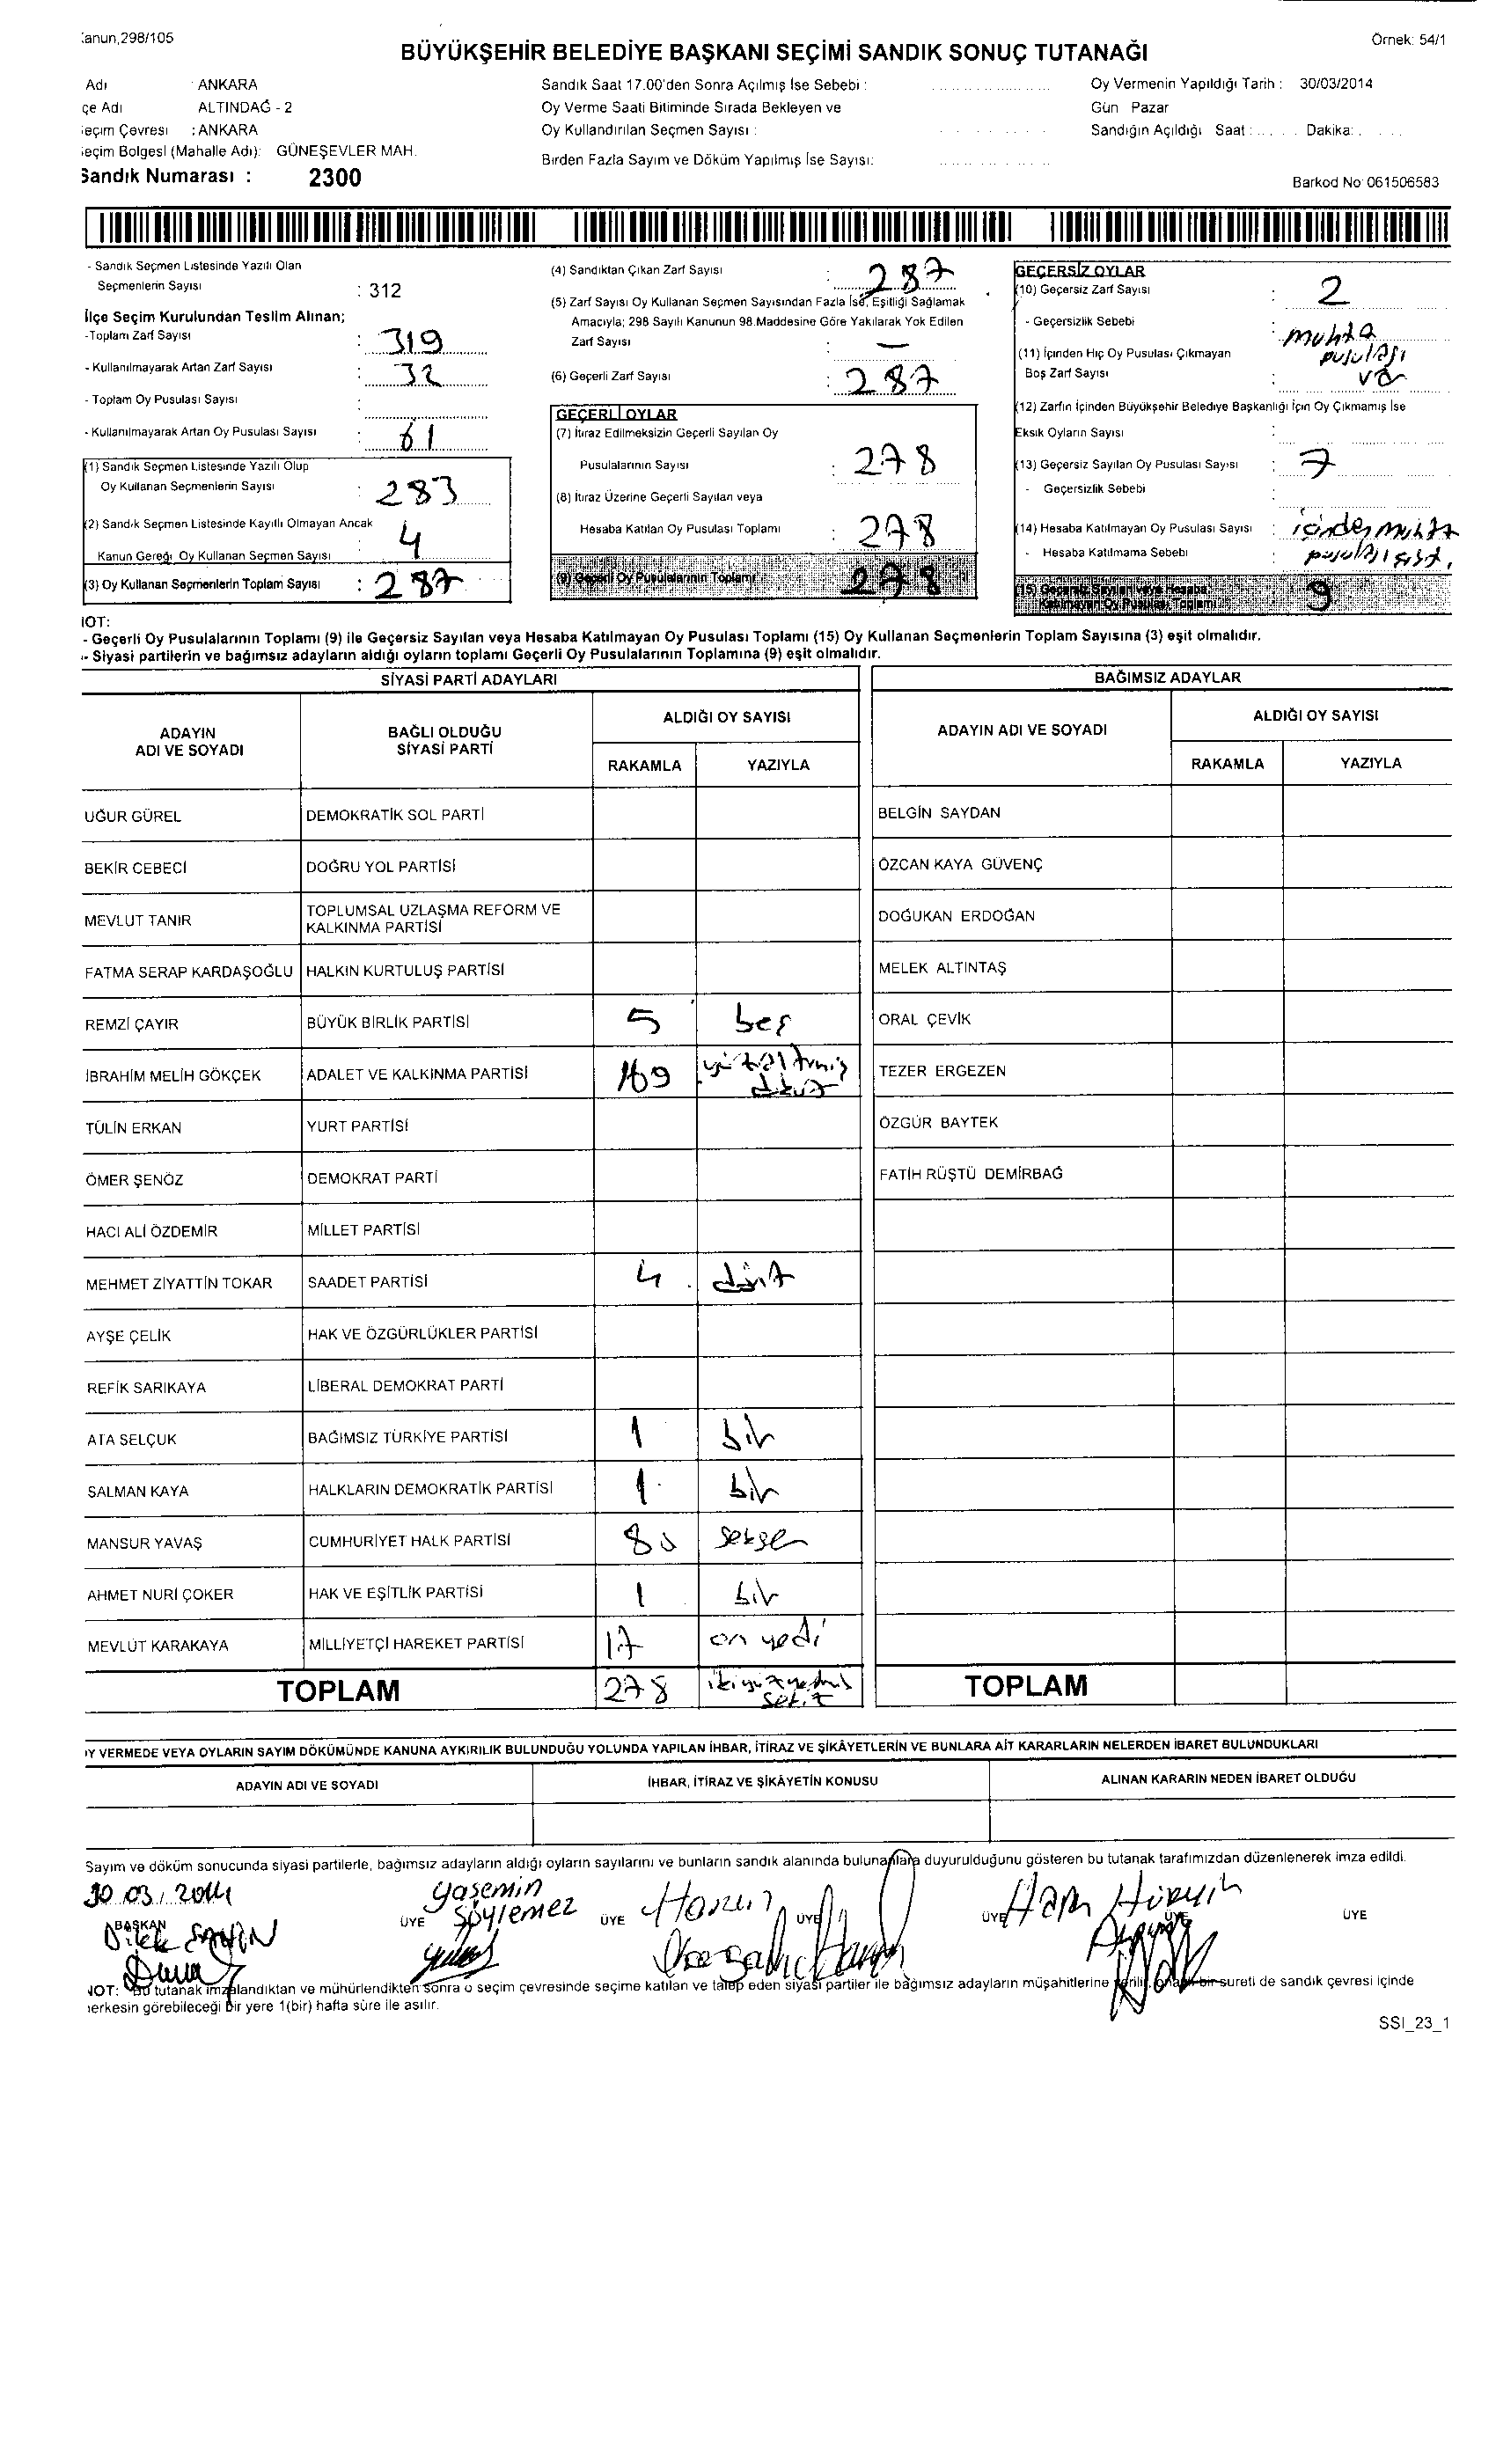 anun,298/105
Örnek: 54/1
BÜYÜKŞEHİR BELEDİYE BAŞKANI SEÇİMİ SANDIK SONUÇ TUTANAĞI
Adı : ANKARA
çe Adı ALTINDAĞ - 2
eçim Çevresi : ANKARA
eçim Bölgesi (Mahalle Adı): GÜNEŞEVLER MAH.
Sandık Numarası : 2300
Sandık Saat 17.00'den Sonra Açılmış İse Sebebi :
Oy Verme Saati Bitiminde Sırada Bekleyen ve
Oy Kullandırılan Seçmen Sayısı :
Birden Fazla Sayım ve Döküm Yapılmış İse Sayısı:
Oy Vermenin Yapıldığı Tarih : 30/03/2014
Gün Pazar
Sandığın Açıldığı Saat : Dakika:
Barkod No: 061506583
- Sandık Seçmen Listesinde Yazılı Olan
Seçmenlerin Sayısı : 312
İlçe Seçim Kurulundan Teslim Alınan;
-Toplam Zarf Sayısı : 319
- Kullanılmayarak Artan Zarf Sayısı : 32
- Toplam Oy Pusulası Sayısı :
- Kullanılmayarak Artan Oy Pusulası Sayısı : 61
(1) Sandık Seçmen Listesinde Yazılı Olup
Oy Kullanan Seçmenlerin Sayısı : 283
(2) Sandık Seçmen Listesinde Kayıtlı Olmayan Ancak
Kanun Gereği Oy Kullanan Seçmen Sayısı : 4
(3) Oy Kullanan Seçmenlerin Toplam Sayısı : 287
(4) Sandıktan Çıkan Zarf Sayısı : 287
(5) Zarf Sayısı Oy Kullanan Seçmen Sayısından Fazla İse, Eşitliği Sağlamak
Amacıyla; 298 Sayılı Kanunun 98.Maddesine Göre Yakılarak Yok Edilen
Zarf Sayısı : —
(6) Geçerli Zarf Sayısı : 287
GEÇERLİ OYLAR
(7) İtiraz Edilmeksizin Geçerli Sayılan Oy
Pusulalarının Sayısı : 278
(8) İtiraz Üzerine Geçerli Sayılan veya
Hesaba Katılan Oy Pusulası Toplamı : 278
(9) Geçerli Oy Pusulalarının Toplamı 278
GEÇERSİZ OYLAR
(10) Geçersiz Zarf Sayısı : 2
- Geçersizlik Sebebi : muhta
pusulası
var
(11) İçinden Hiç Oy Pusulası Çıkmayan
Boş Zarf Sayısı :
(12) Zarfın İçinden Büyükşehir Belediye Başkanlığı İçin Oy Çıkmamış İse
Eksik Oyların Sayısı :
(13) Geçersiz Sayılan Oy Pusulası Sayısı : 7
- Geçersizlik Sebebi :
(14) Hesaba Katılmayan Oy Pusulası Sayısı : içinden muhta
- Hesaba Katılmama Sebebi : pusulası çıktı.
(15) Geçersiz Sayılan veya Hesaba
Katılmayan Oy Pusulası Toplamı 9
NOT:
- Geçerli Oy Pusulalarının Toplamı (9) ile Geçersiz Sayılan veya Hesaba Katılmayan Oy Pusulası Toplamı (15) Oy Kullanan Seçmenlerin Toplam Sayısına (3) eşit olmalıdır.
- Siyasi partilerin ve bağımsız adayların aldığı oyların toplamı Geçerli Oy Pusulalarının Toplamına (9) eşit olmalıdır.
SİYASİ PARTİ ADAYLARI
ADAYIN ADI VE SOYADI
BAĞLI OLDUĞU SİYASİ PARTİ
ALDIĞI OY SAYISI
RAKAMLA YAZIYLA
UĞUR GÜREL DEMOKRATİK SOL PARTİ
BEKİR CEBECİ DOĞRU YOL PARTİSİ
MEVLUT TANIR TOPLUMSAL UZLAŞMA REFORM VE
KALKINMA PARTİSİ
FATMA SERAP KARDAŞOĞLU HALKIN KURTULUŞ PARTİSİ
REMZİ ÇAYIR BÜYÜK BİRLİK PARTİSİ 5 beş
İBRAHİM MELİH GÖKÇEK ADALET VE KALKINMA PARTİSİ 169 yüzaltmış
dokuz
TÜLİN ERKAN YURT PARTİSİ
ÖMER ŞENÖZ DEMOKRAT PARTİ
HACI ALİ ÖZDEMİR MİLLET PARTİSİ
MEHMET ZİYATTİN TOKAR SAADET PARTİSİ 4 dört
AYŞE ÇELİK HAK VE ÖZGÜRLÜKLER PARTİSİ
REFİK SARIKAYA LİBERAL DEMOKRAT PARTİ
ATA SELÇUK BAĞIMSIZ TÜRKİYE PARTİSİ 1 bir
SALMAN KAYA HALKLARIN DEMOKRATİK PARTİSİ 1 bir
MANSUR YAVAŞ CUMHURİYET HALK PARTİSİ 80 seksen
AHMET NURİ ÇOKER HAK VE EŞİTLİK PARTİSİ 1 bir
MEVLÜT KARAKAYA MİLLİYETÇİ HAREKET PARTİSİ 17 on yedi
TOPLAM 278 ikiyüzyetmiş
sekiz
BAĞIMSIZ ADAYLAR
ADAYIN ADI VE SOYADI
ALDIĞI OY SAYISI
RAKAMLA YAZIYLA
BELGİN SAYDAN
ÖZCAN KAYA GÜVENÇ
DOĞUKAN ERDOĞAN
MELEK ALTINTAŞ
ORAL ÇEVİK
TEZER ERGEZEN
ÖZGÜR BAYTEK
FATİH RÜŞTÜ DEMİRBAĞ
TOPLAM
Y VERMEDE VEYA OYLARIN SAYIM DÖKÜMÜNDE KANUNA AYKIRILIK BULUNDUĞU YOLUNDA YAPILAN İHBAR, İTİRAZ VE ŞİKÂYETLERİN VE BUNLARA AİT KARARLARIN NELERDEN İBARET BULUNDUKLARI
ADAYIN ADI VE SOYADI İHBAR, İTİRAZ VE ŞİKÂYETİN KONUSU ALINAN KARARIN NEDEN İBARET OLDUĞU
Sayım ve döküm sonucunda siyasi partilerle, bağımsız adayların aldığı oyların sayılarını ve bunların sandık alanında bulunanlara duyurulduğunu gösteren bu tutanak tarafımızdan düzenlenerek imza edildi.
30.03.2014
BAŞKAN ÜYE ÜYE ÜYE ÜYE ÜYE ÜYE
Dilek SAYIN
Yasemin
Söylemez
NOT: Bu tutanak imzalandıktan ve mühürlendikten sonra o seçim çevresinde seçime katılan ve talep eden siyasi partiler ile bağımsız adayların müşahitlerine verilir, onaylı bir sureti de sandık çevresi içinde
herkesin görebileceği bir yere 1(bir) hafta süre ile asılır.
SSI_23_1